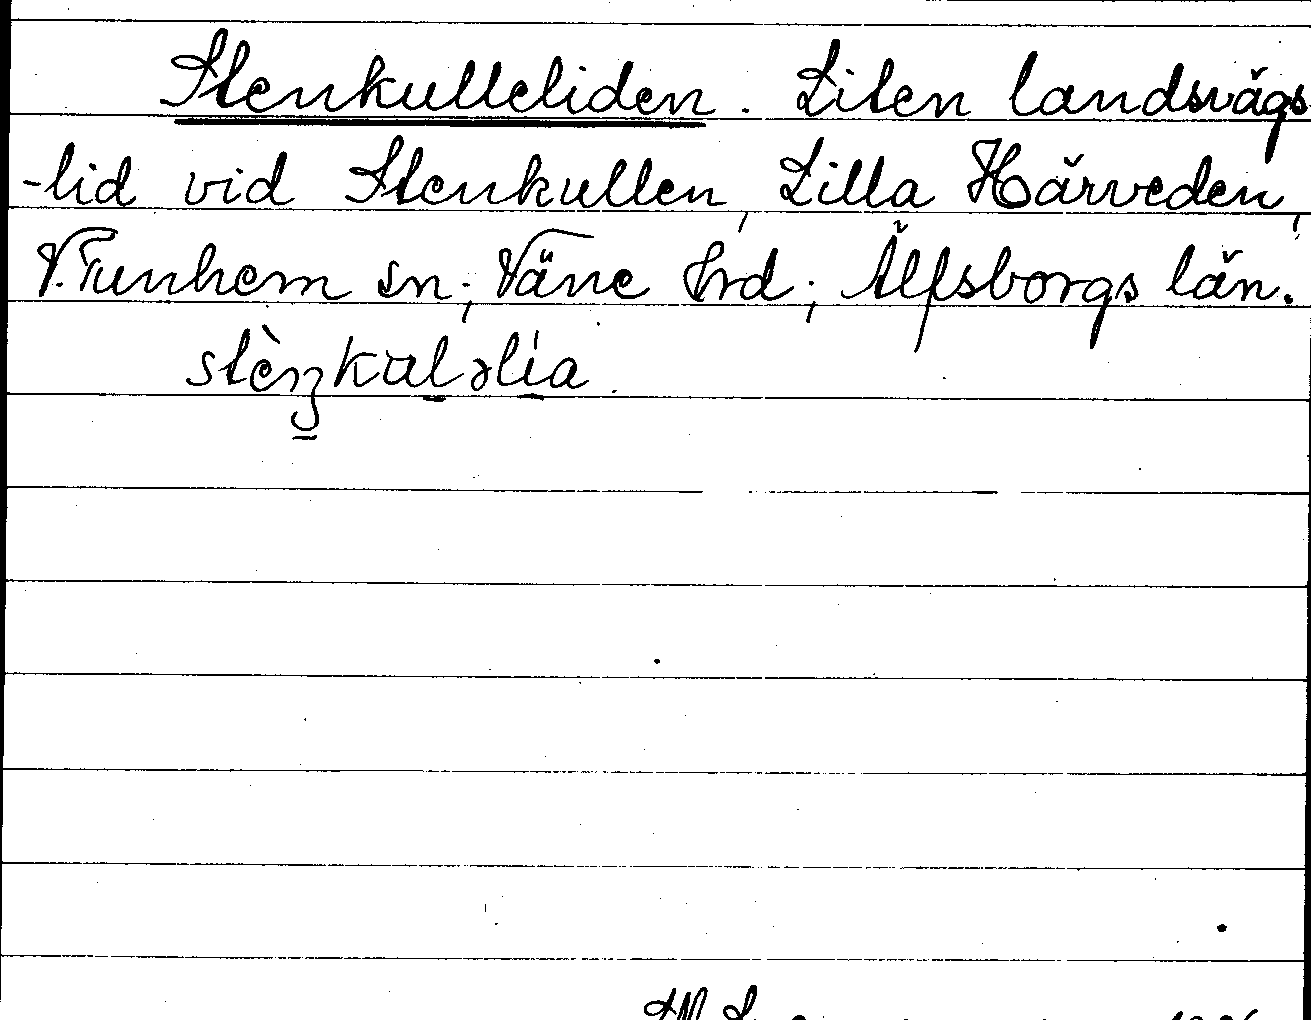 Stenkulleliden. Liten landsvägs
-lid vid Stenkullen, Lilla Härveden,
V.Tunhem sn; Väne hrd; Älfsborgs län.
stèŋkuləlia.